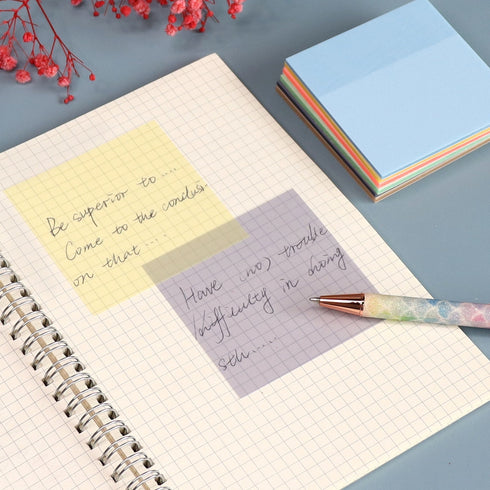 Be superior to ....
Come to the conclusi
on that ....
Have (no) trouble
/difficulty in doing
sth.....